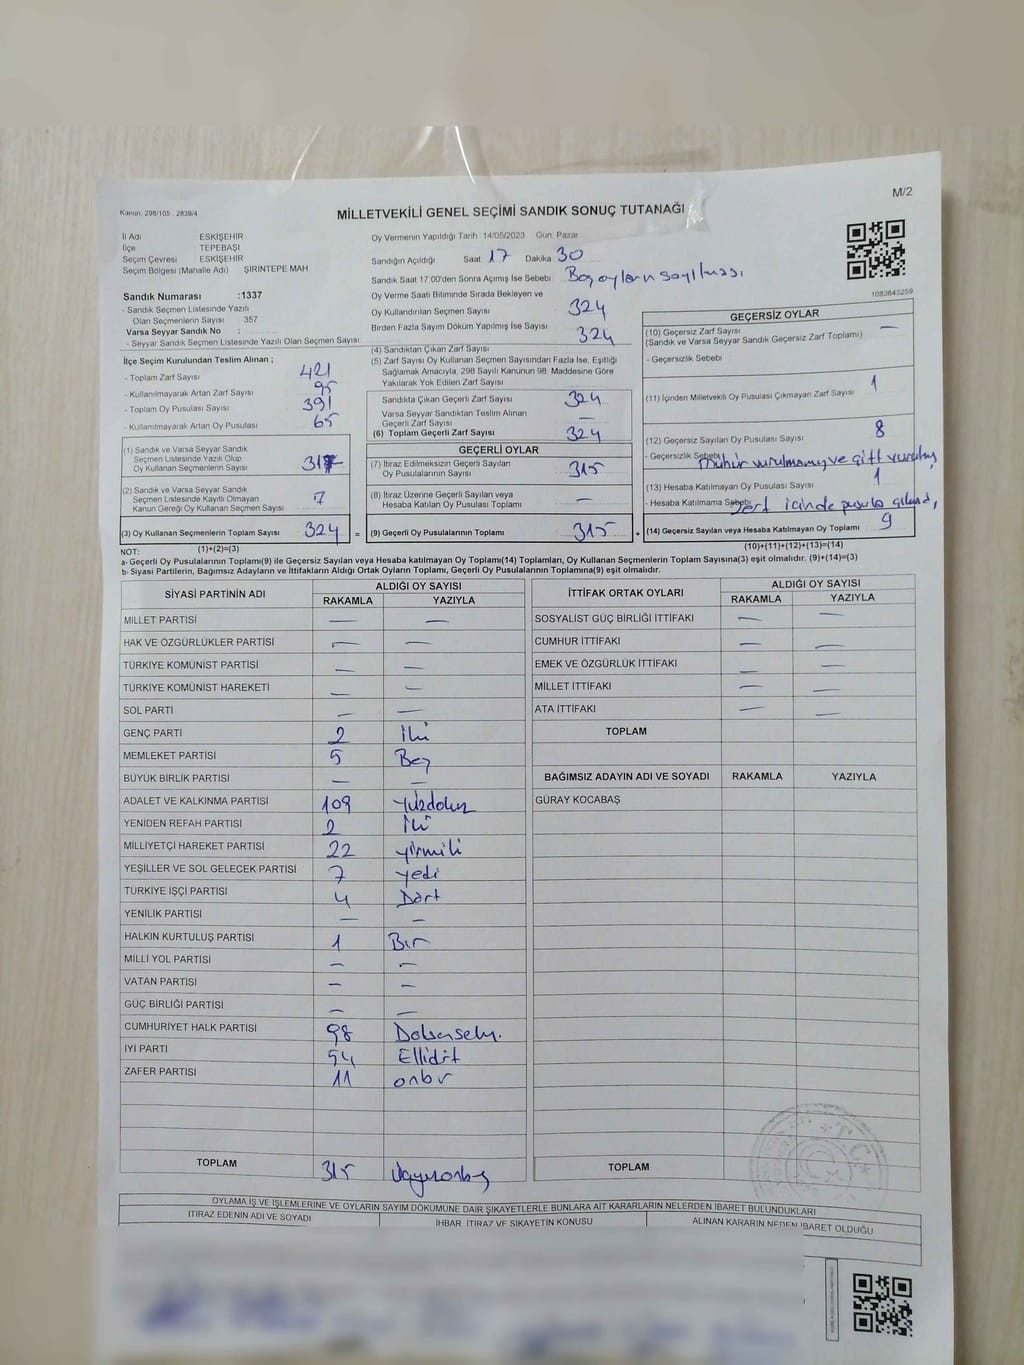 M/2
Kanun. 298/105 . 2839/4
MİLLETVEKİLİ GENEL SEÇİMİ SANDIK SONUÇ TUTANAĞI
İl Adı ESKİŞEHİR
İlçe TEPEBAŞI
Seçim Çevresi ESKİŞEHİR
Seçim Bölgesi (Mahalle Adı) ŞİRİNTEPE MAH
Sandık Numarası :1337
- Sandık Seçmen Listesinde Yazılı
Olan Seçmenlerin Sayısı 357
Varsa Seyyar Sandık No :
- Seyyar Sandık Seçmen Listesinde Yazılı Olan Seçmen Sayısı
İlçe Seçim Kurulundan Teslim Alınan ;
- Toplam Zarf Sayısı 421
- Kullanılmayarak Artan Zarf Sayısı 95
- Toplam Oy Pusulası Sayısı 391
- Kullanılmayarak Artan Oy Pusulası 65
(1) Sandık ve Varsa Seyyar Sandık
Seçmen Listesinde Yazılı Olup
Oy Kullanan Seçmenlerin Sayısı 317
(2) Sandık ve Varsa Seyyar Sandık
Seçmen Listesinde Kayıtlı Olmayan
Kanun Gereği Oy Kullanan Seçmen Sayısı 7
(3) Oy Kullanan Seçmenlerin Toplam Sayısı 324 =
Oy Vermenin Yapıldığı Tarih 14/05/2023 Gün. Pazar
Sandığın Açıldığı Saat 17 Dakika 30
Sandık Saat 17.00'den Sonra Açılmış İse Sebebi Boş oyların sayılması
Oy Verme Saati Bitiminde Sırada Bekleyen ve
Oy Kullandırılan Seçmen Sayısı 324
Birden Fazla Sayım Döküm Yapılmış İse Sayısı 324
(4) Sandıktan Çıkan Zarf Sayısı
(5) Zarf Sayısı Oy Kullanan Seçmen Sayısından Fazla İse, Eşitliği
Sağlamak Amacıyla, 298 Sayılı Kanunun 98. Maddesine Göre
Yakılarak Yok Edilen Zarf Sayısı
Sandıkta Çıkan Geçerli Zarf Sayısı 324
Varsa Seyyar Sandıktan Teslim Alınan
Geçerli Zarf Sayısı —
(6) Toplam Geçerli Zarf Sayısı 324
GEÇERLİ OYLAR
(7) İtiraz Edilmeksizin Geçerli Sayılan
Oy Pusulalarının Sayısı 315
(8) İtiraz Üzerine Geçerli Sayılan veya
Hesaba Katılan Oy Pusulası Toplamı —
(9) Geçerli Oy Pusulalarının Toplamı 315 +
1083643259
GEÇERSİZ OYLAR
(10) Geçersiz Zarf Sayısı —
(Sandık ve Varsa Seyyar Sandık Geçersiz Zarf Toplamı)
- Geçersizlik Sebebi
(11) İçinden Milletvekili Oy Pusulası Çıkmayan Zarf Sayısı 1
(12) Geçersiz Sayılan Oy Pusulası Sayısı 8
- Geçersizlik Sebebi mühür vurulmamış ve çift vurulmuş
(13) Hesaba Katılmayan Oy Pusulası Sayısı 1
- Hesaba Katılmama Sebebi Zarf içinde pusula çıkmadı
(14) Geçersiz Sayılan veya Hesaba Katılmayan Oy Toplamı 9
NOT: (1)+(2)=(3) (10)+(11)+(12)+(13)=(14)
a- Geçerli Oy Pusulalarının Toplamı(9) ile Geçersiz Sayılan veya Hesaba Katılmayan Oy Toplamı(14) Toplamları, Oy Kullanan Seçmenlerin Toplam Sayısına(3) eşit olmalıdır. (9)+(14)=(3)
b- Siyasi Partilerin, Bağımsız Adayların ve İttifakların Aldığı Ortak Oyların Toplamı, Geçerli Oy Pusulalarının Toplamına(9) eşit olmalıdır.
SİYASİ PARTİNİN ADI ALDIĞI OY SAYISI
RAKAMLA YAZIYLA
MİLLET PARTİSİ — —
HAK VE ÖZGÜRLÜKLER PARTİSİ — —
TÜRKİYE KOMÜNİST PARTİSİ — —
TÜRKİYE KOMÜNİST HAREKETİ — —
SOL PARTİ — —
GENÇ PARTİ 2 İki
MEMLEKET PARTİSİ 5 Beş
BÜYÜK BİRLİK PARTİSİ — —
ADALET VE KALKINMA PARTİSİ 109 yüzdokuz
YENİDEN REFAH PARTİSİ 2 İki
MİLLİYETÇİ HAREKET PARTİSİ 22 yirmiki
YEŞİLLER VE SOL GELECEK PARTİSİ 7 yedi
TÜRKİYE İŞÇİ PARTİSİ 4 Dört
YENİLİK PARTİSİ — —
HALKIN KURTULUŞ PARTİSİ 1 Bir
MİLLİ YOL PARTİSİ — —
VATAN PARTİSİ — —
GÜÇ BİRLİĞİ PARTİSİ — —
CUMHURİYET HALK PARTİSİ 98 Doksansek.
İYİ PARTİ 54 Ellidört
ZAFER PARTİSİ 11 onbir
TOPLAM 315 üçyüzonbeş
İTTİFAK ORTAK OYLARI ALDIĞI OY SAYISI
RAKAMLA YAZIYLA
SOSYALİST GÜÇ BİRLİĞİ İTTİFAKI — —
CUMHUR İTTİFAKI — —
EMEK VE ÖZGÜRLÜK İTTİFAKI — —
MİLLET İTTİFAKI — —
ATA İTTİFAKI — —
TOPLAM
BAĞIMSIZ ADAYIN ADI VE SOYADI RAKAMLA YAZIYLA
GÜRAY KOCABAŞ
TOPLAM
OYLAMA İŞ VE İŞLEMLERİNE VE OYLARIN SAYIM DÖKÜMÜNE DAİR ŞİKAYETLERLE BUNLARA AİT KARARLARIN NELERDEN İBARET BULUNDUKLARI
İTİRAZ EDENİN ADI VE SOYADI İHBAR, İTİRAZ VE ŞİKAYETİN KONUSU ALINAN KARARIN NEDEN İBARET OLDUĞU